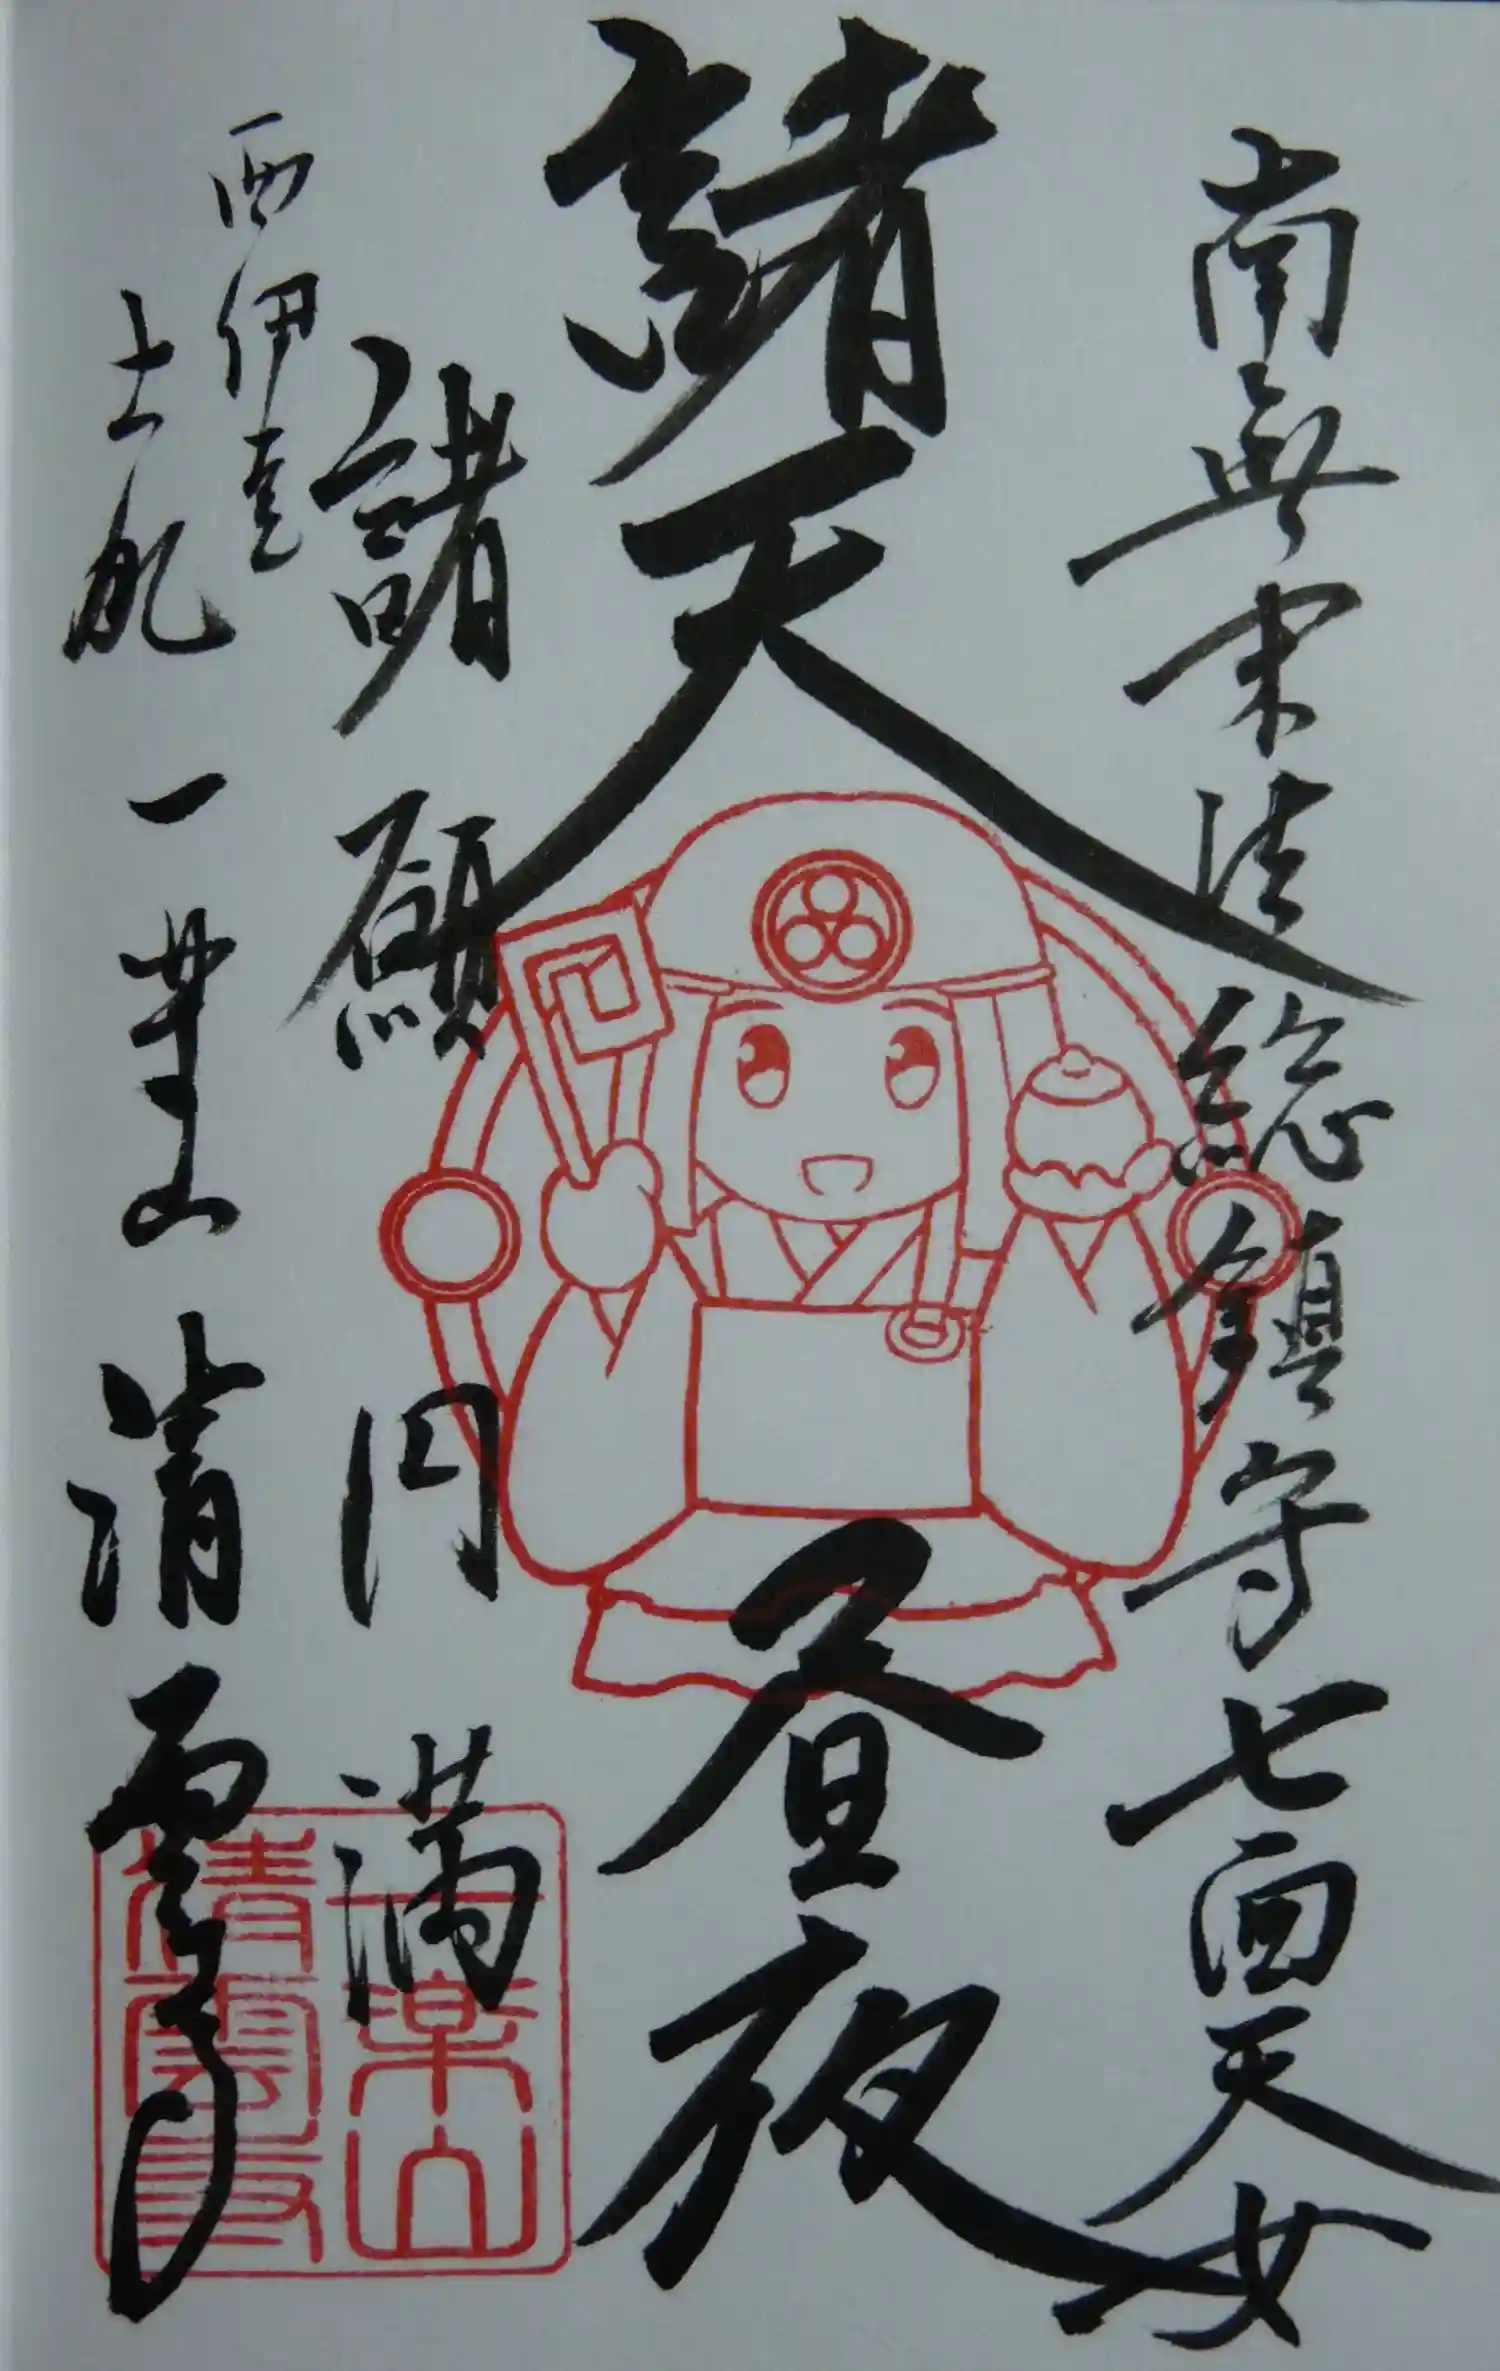 南無末法総鎮守七面天女
諸天昼夜
諸願円満
西伊豆
土肥 一楽山 清雲寺
一楽山
清雲寺